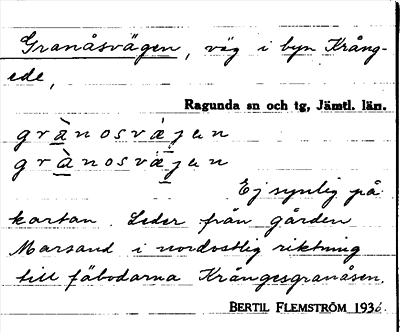 Granåsvägen, väg i byn Krång-
ede,
Ragunda sn och tg, Jämtl. län.
grànosvä̀jen
grÀnosvä̀jen
Ej synlig på
kartan. Leder från gården
Marsand i nordostlig riktning
till fäbodarna Krångesgranåsen.
BERTIL FLEMSTRÖM 1936.